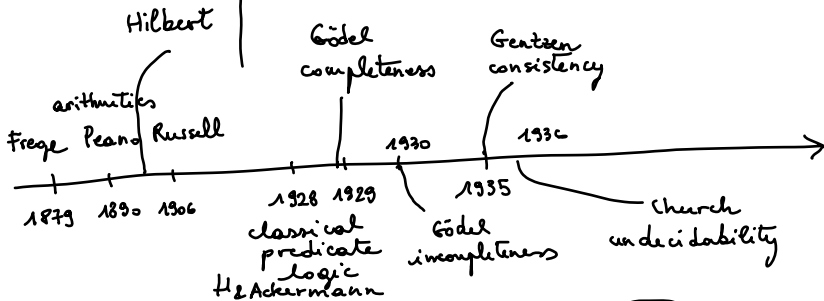 Hilbert
Gödel
completeness
Gentzen
consistency
arithmetics
Frege Peano Russell
1930
1936
1879 1890 1906
1928 1929
1935
classical
predicate
logic
H&Ackermann
Gödel
incompleteness
Church
undecidability